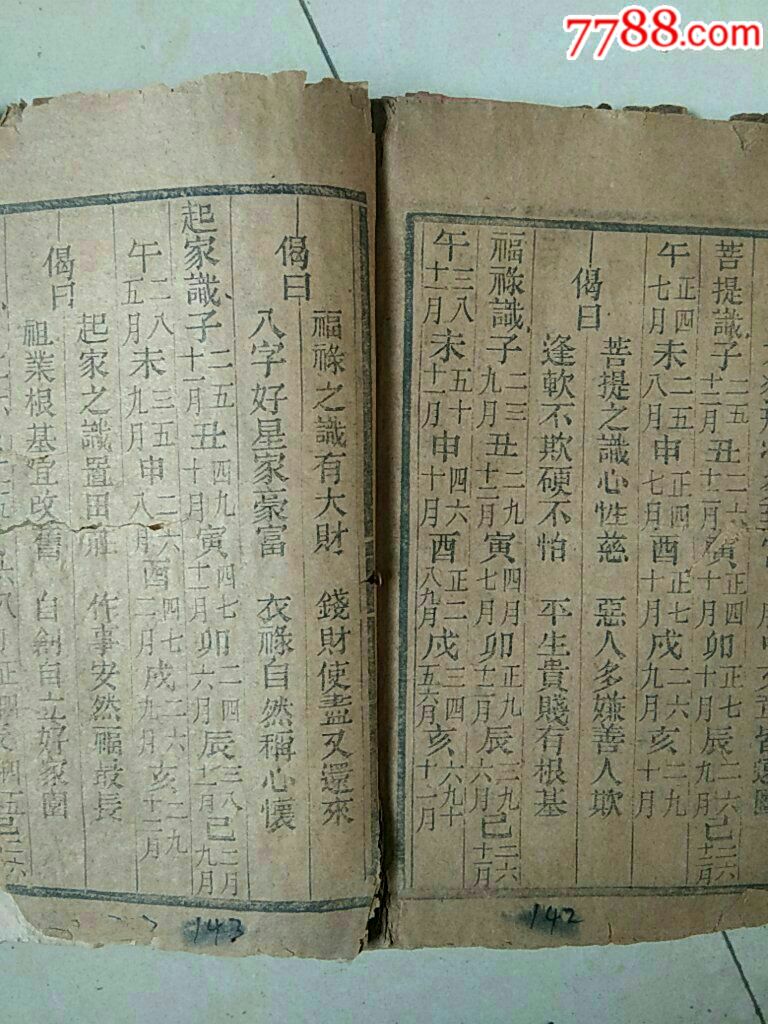 7788.com
菩提識子二五十二月丑二六十二月寅十月卯正七十一月辰二六九月巳二六十二月
午正四七月未二五八月申正四七月酉正七十月戌二六九月亥二九十月
偈曰
菩提之識心性慈 惡人多嫌善人欺
逢軟不欺硬不怕 平生貴賤有根基
福祿識子二三九月丑二九十二月寅四月七月卯正九十二月辰三九六月巳二六十二月
午三八十一月未五十十一月申四六十月酉正二八九月戌三四五六月亥六九十十二月
福祿之識有大財 錢財使盡又還來
偈曰
八字好星家豪富 衣祿自然稱心懷
起家識子二五十一月丑四九十月寅四七十一月卯二四六月辰三八十一月巳二月九月
午二八五月未三五九月申二六八月酉四七二月戌二六九月亥二九十二月
起家之識置田莊 作事安然福最長
偈曰
祖業根基宜改舊 自創自立好家園
142
143